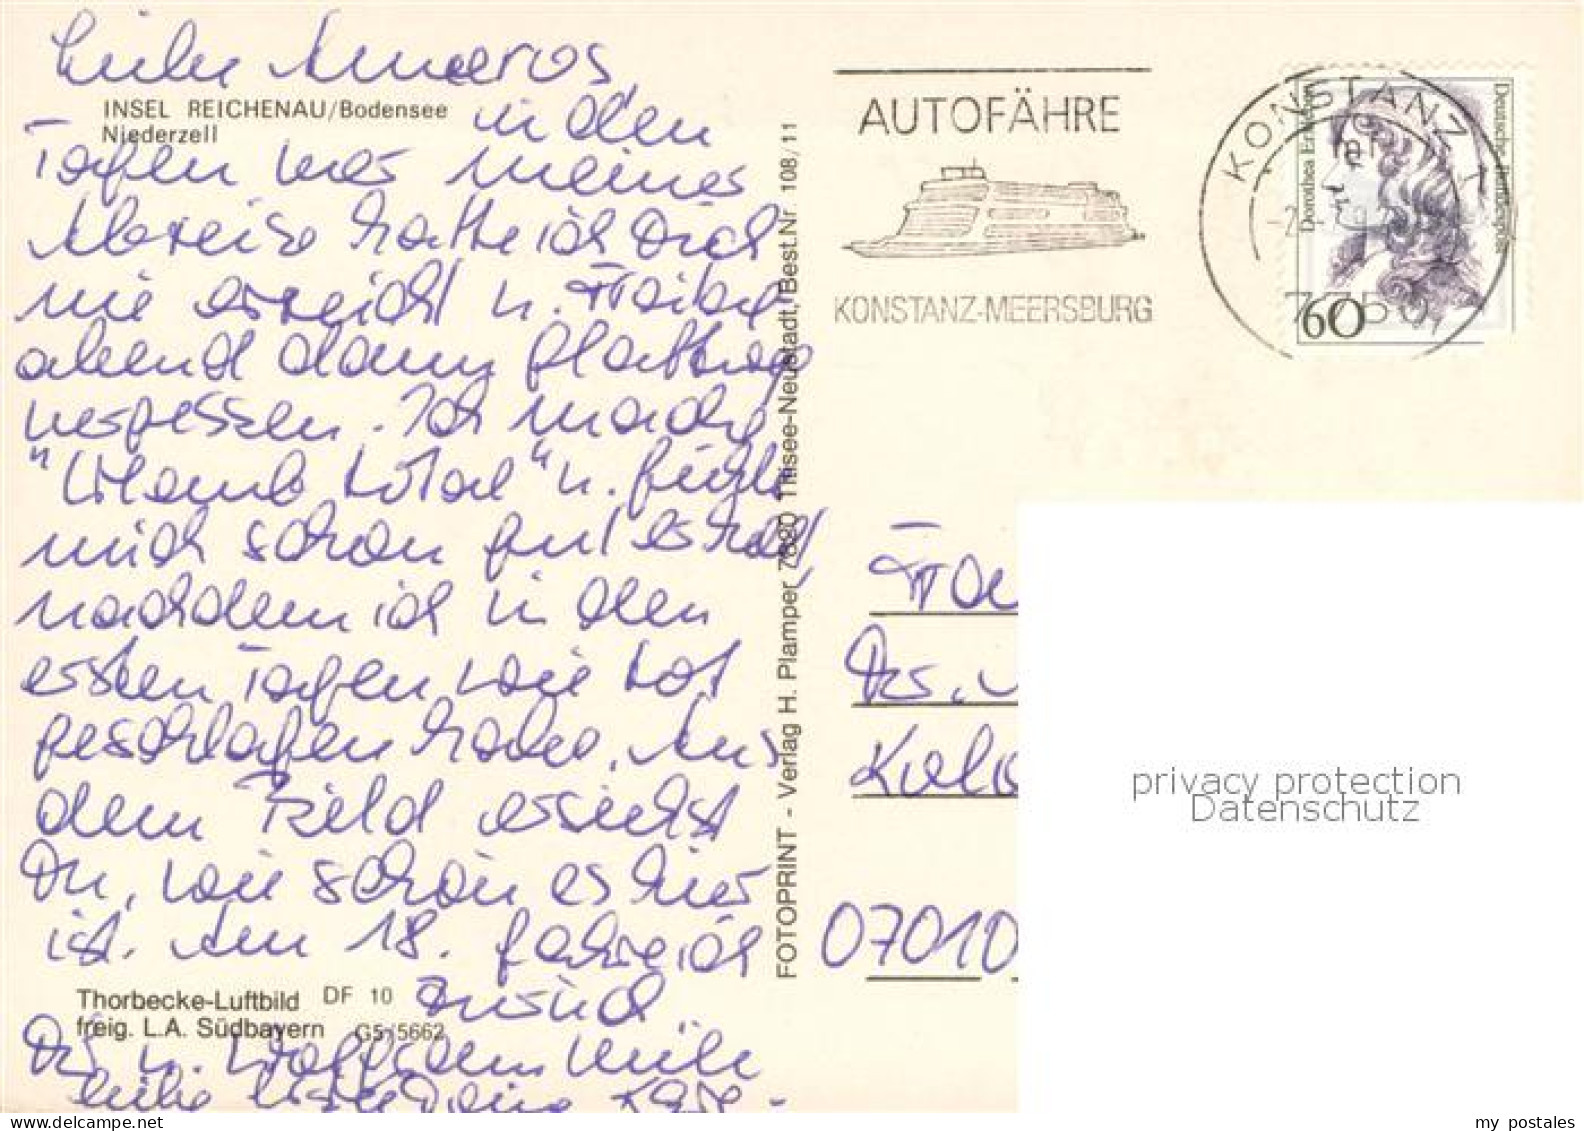 INSEL REICHENAU/Bodensee
Niederzell
in den
Tagen vor meiner
Abreise hatte ich Dich
nie erreicht u. Freitag
abend dann
vergessen. Ich mache
"Urlaub total" u. fühle
mich schon gut erholt
nachdem ich in den
ersten Tagen wie tot
geschlafen habe. Aus
dem Bild ersiehst
Du, wie schön es hier
ist. Am 18. fahre ich
zurück.
Thorbecke-Luftbild DF 10
freig. L.A. Südbayern G5/5662
Dir u. Wolfgang viele
liebe Grüße Deine
FOTOPRINT - Verlag H. Plamper 7820 Titisee-Neustadt, Best.Nr. 108/11
AUTOFÄHRE
KONSTANZ-MEERSBURG
KONSTANZ 1
Dorothea Erxleben
Deutsche Bundespost
60
Dr.
07010
privacy protection
Datenschutz
my postales